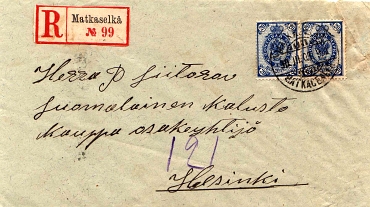 R Matkaselkä
№ 99
Herra P Siitoin
Suomalainen Kalusto
Kauppa osakeyhtijö
121
Helsinki